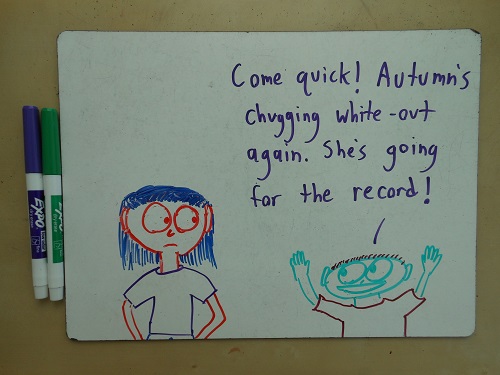 Come quick! Autumn's
chugging white-out
again. She's going
for the record!
EXPO